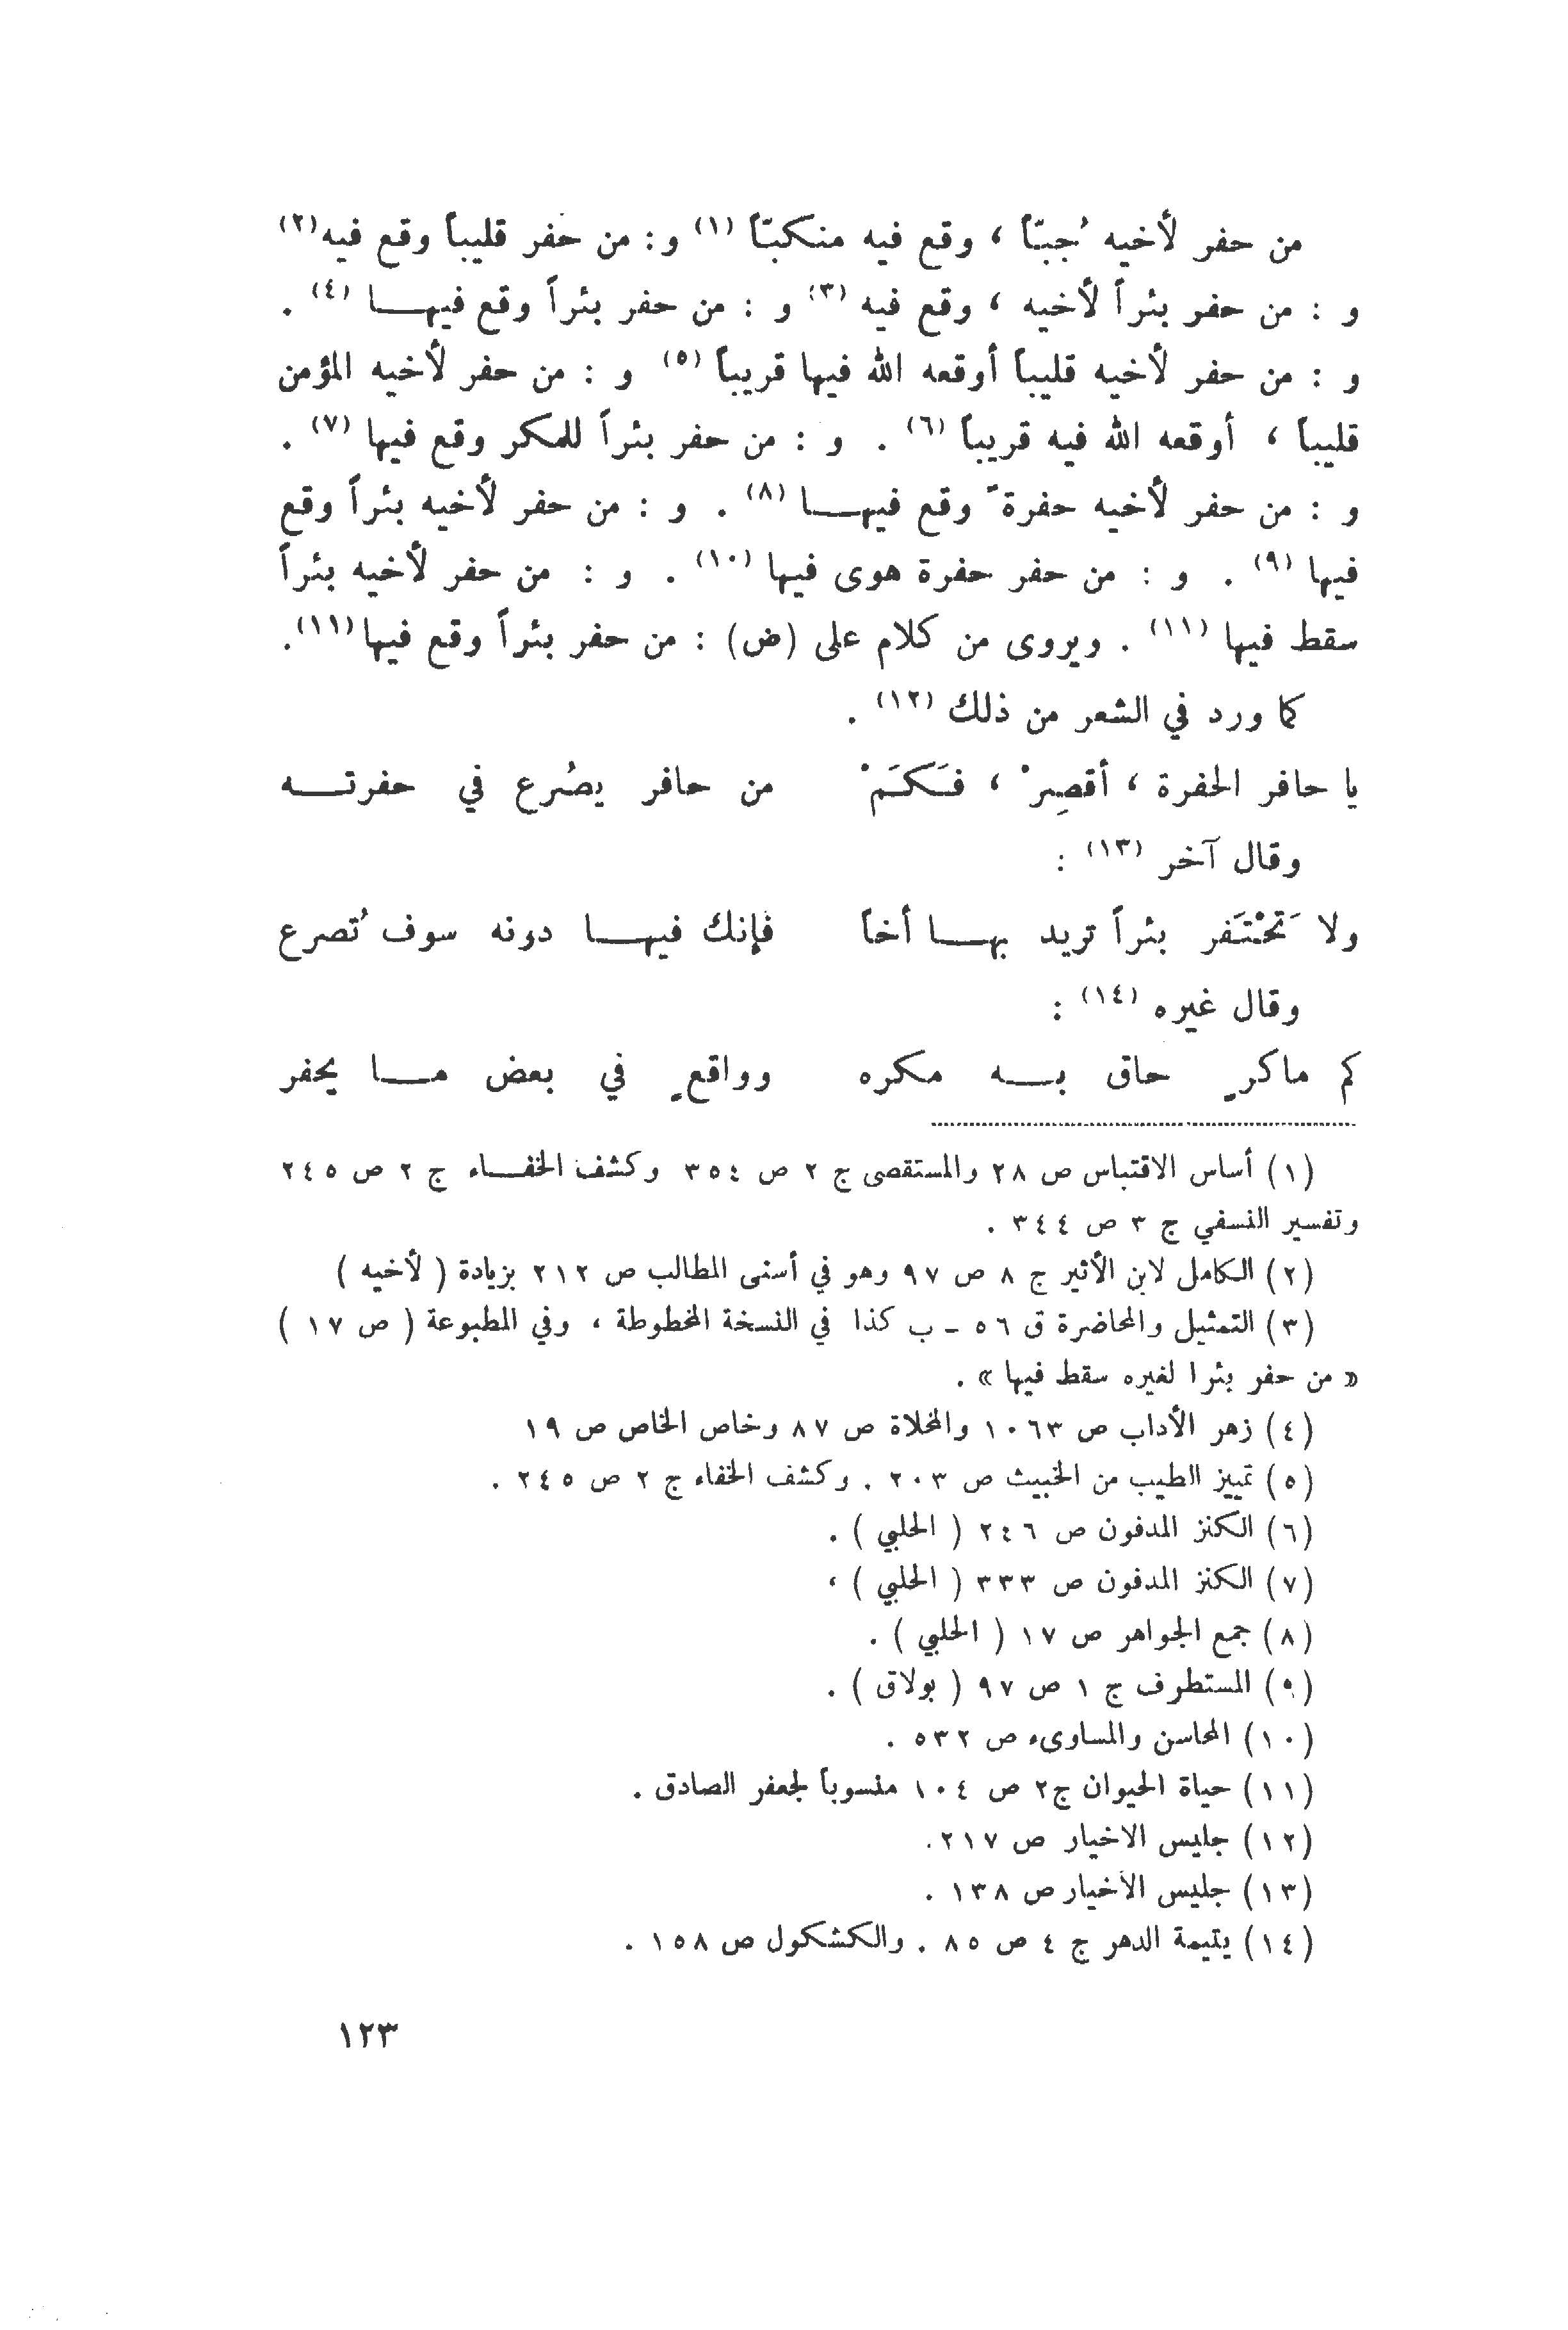 من حفر لأخيه جُبّاً ، وقع فيه منكبّاً (١) و: من حفر قليباً وقع فيه(٢)
و : من حفر بئراً لأخيه ، وقع فيه (٣) و : من حفر بئراً وقع فيهـا (٤) .
و : من حفر لأخيه قليباً أوقعه الله فيها قريباً (٥) و : من حفر لأخيه المؤمن
قليباً ، أوقعه الله فيه قريباً (٦) . و : من حفر بئراً للمكر وقع فيها (٧) .
و : من حفر لأخيه حفرةً وقع فيهـا (٨) . و : من حفر لأخيه بئراً وقع
فيها (٩) . و : من حفر حفرة هوى فيها (١٠) . و : من حفر لأخيه بئراً
سقط فيها (١١) . ويروى من كلام على (ض) : من حفر بئراً وقع فيها(١١).
كما ورد في الشعر من ذلك (١٢) .
يا حافر الحفرة ، أقصِرْ ، فَكَمَْ من حافر يصُرع في حفرتـه
وقال آخر (١٣) :
ولا تَحْتَفر بئراً تريد بهـا أخاً فإنك فيهـا دونه سوف تُصرع
وقال غيره (١٤) :
كم ماكرٍ حاق بـه مكره وواقعٍ في بعض مـا يحفر
(١) أساس الاقتباس ص ٢٨ والمستقصى ج ٢ ص ٣٥٤ وكشف الخفـاء ج ٢ ص ٢٤٥
وتفسير النسفي ج ٣ ص ٣٤٤ .
(٢) الكامل لابن الأثير ج ٨ ص ٩٧ وهو في أسنى المطالب ص ٢١٢ بزيادة ( لأخيه )
(٣) التمثيل والمحاضرة ق ٥٦ - ب كذا في النسخة المخطوطة ، وفي المطبوعة ( ص ١٧ )
« من حفر بئرا لغيره سقط فيها » .
(٤) زهر الأداب ص ١٠٦٣ والمخلاة ص ٨٧ وخاص الخاص ص ١٩
(٥) تمييز الطيب من الخبيث ص ٢٠٣ . وكشف الخفاء ج ٢ ص ٢٤٥ .
(٦) الكنز المدفون ص ٢٤٦ ( الحلبي ) .
(٧) الكنز المدفون ص ٣٣٣ ( الحلبي ) ،
(٨) جمع الجواهر ص ١٧ ( الحلبي ) .
(٩) المستطرف ج ١ ص ٩٧ ( بولاق ) .
(١٠) المحاسن والمساوىء ص ٥٣٢ .
(١١) حياة الحيوان ج٢ ص ١٠٤ منسوباً لجعفر الصادق .
(١٢) جليس الاخيار ص ٢١٧.
(١٣) جليس الأخيار ص ١٣٨ .
(١٤) يتيمة الدهر ج ٤ ص ٨٥ . والكشكول ص ١٥٨ .
١٢٣